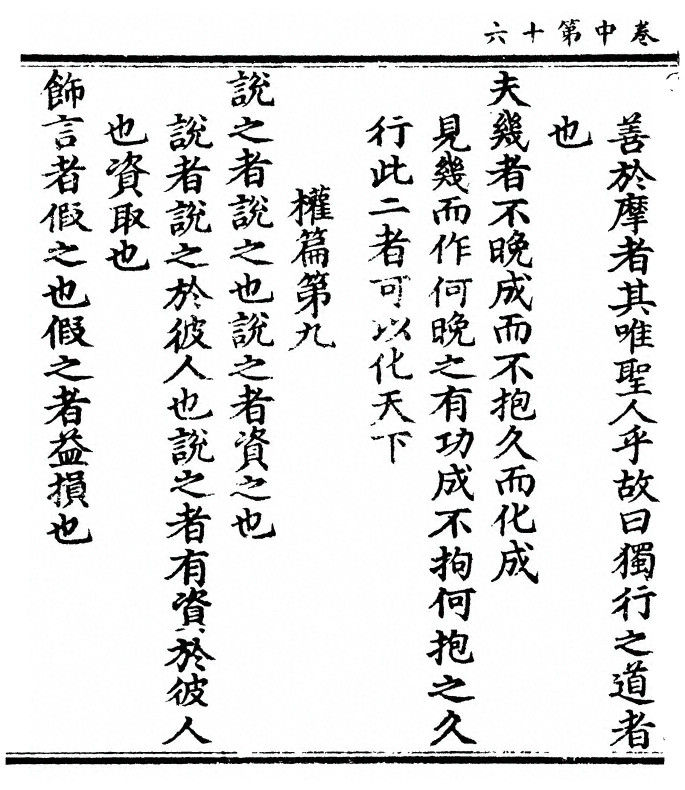 卷中第十六
善於摩者其唯聖人乎故曰獨行之道者
也
夫幾者不晚成而不抱久而化成
見幾而作何晚之有功成不拘何抱之久
行此二者可以化天下
權篇第九
說之者說之也說之者資之也
說者說之於彼人也說之者有資於彼人
也資取也
飾言者假之也假之者益損也